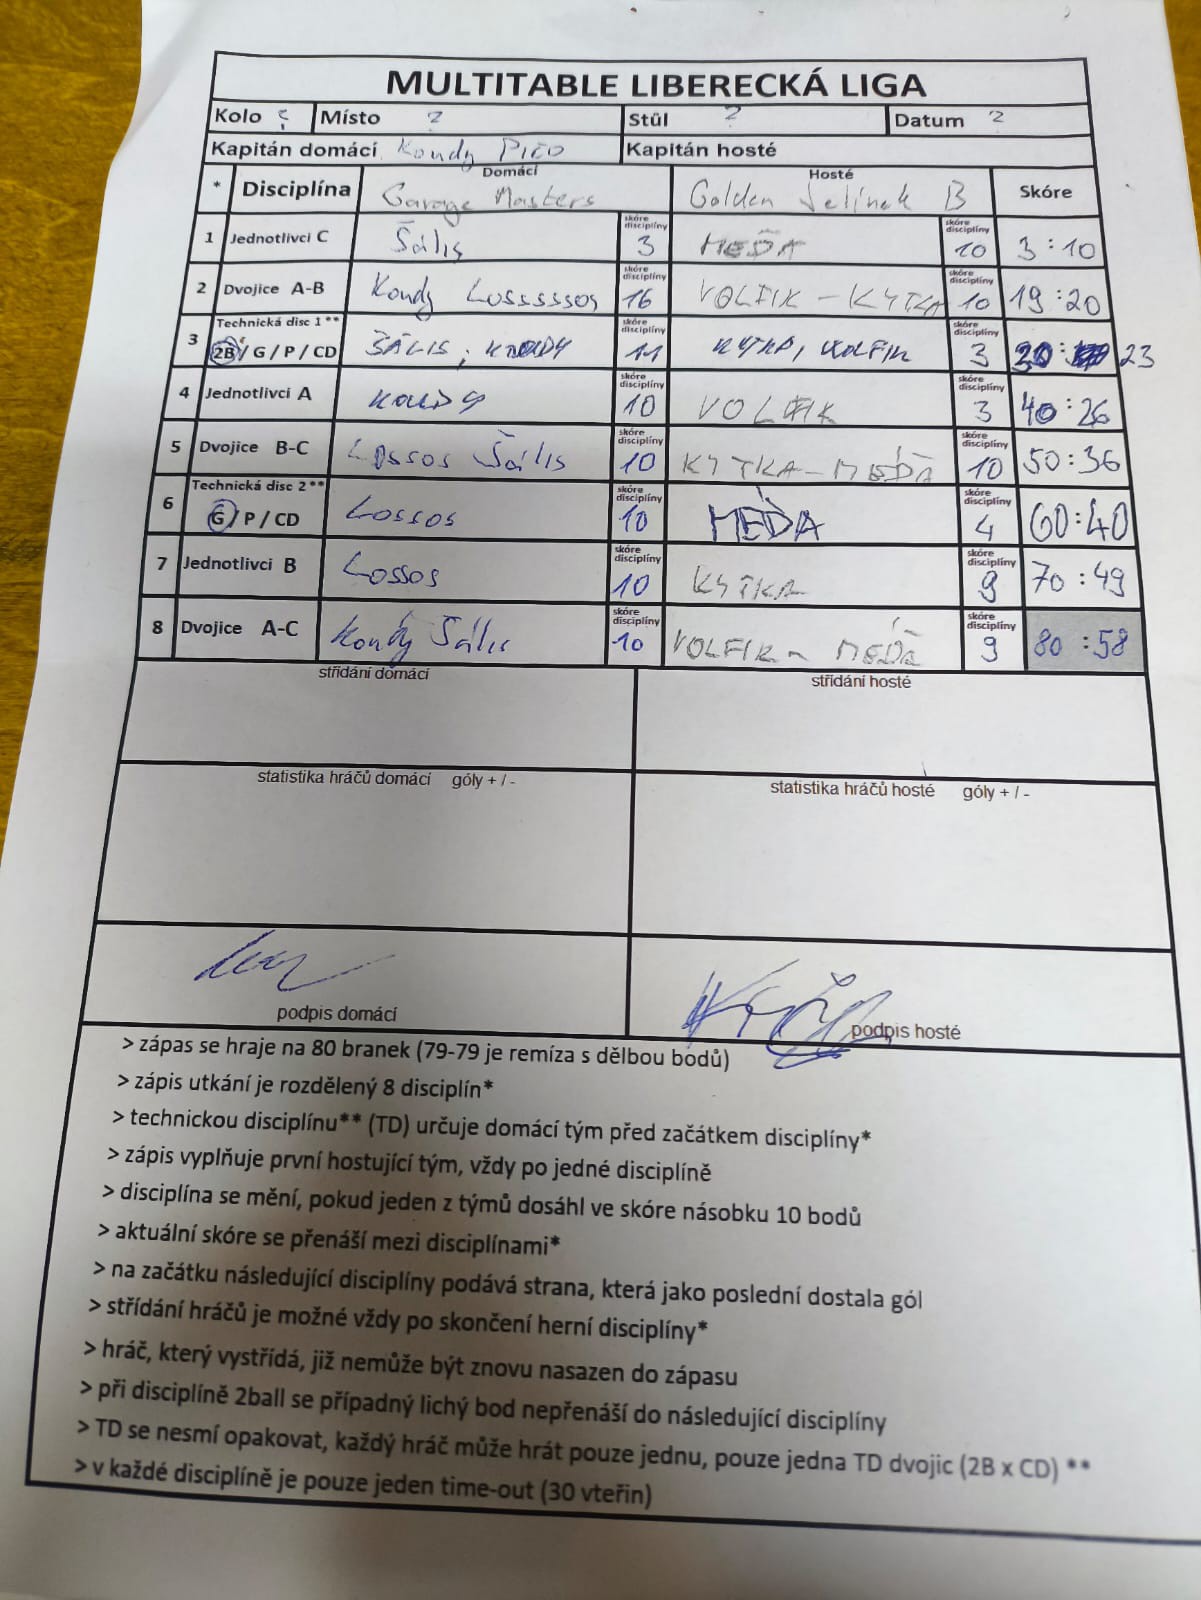 MULTITABLE LIBERECKÁ LIGA
Kolo ? Místo ? Stůl ? Datum ?
Kapitán domácí Kondy Kapitán hosté
* Disciplína Domácí Garage Masters Hosté Golden Jelínek B Skóre
1 Jednotlivci C Šális skóre disciplíny 3 MEĎA skóre disciplíny 10 3:10
2 Dvojice A-B Kondy Losssssos skóre disciplíny 16 VOLFIK - KYTKA skóre disciplíny 10 19:20
3 Technická disc 1 ** 2B / G / P / CD ŠÁLIS, KONDY skóre disciplíny 11 KYTKA, VOLFIK skóre disciplíny 3 30: 23
4 Jednotlivci A KONDY skóre disciplíny 10 VOLFIK skóre disciplíny 3 40:26
5 Dvojice B-C Lossos Šális skóre disciplíny 10 KYTKA-MEĎA skóre disciplíny 10 50:36
6 Technická disc 2 ** G / P / CD Lossos skóre disciplíny 10 MEĎA skóre disciplíny 4 60:40
7 Jednotlivci B Lossos skóre disciplíny 10 KYTKA skóre disciplíny 9 70:49
8 Dvojice A-C Kondy Šális skóre disciplíny 10 VOLFIK - MEĎA skóre disciplíny 9 80:58
střídání domácí střídání hosté
statistika hráčů domácí góly + / - statistika hráčů hosté góly + / -
podpis domácí podpis hosté
> zápas se hraje na 80 branek (79-79 je remíza s dělbou bodů)
> zápis utkání je rozdělený 8 disciplín*
> technickou disciplínu** (TD) určuje domácí tým před začátkem disciplíny*
> zápis vyplňuje první hostující tým, vždy po jedné disciplíně
> disciplína se mění, pokud jeden z týmů dosáhl ve skóre násobku 10 bodů
> aktuální skóre se přenáší mezi disciplínami*
> na začátku následující disciplíny podává strana, která jako poslední dostala gól
> střídání hráčů je možné vždy po skončení herní disciplíny*
> hráč, který vystřídá, již nemůže být znovu nasazen do zápasu
> při disciplíně 2ball se případný lichý bod nepřenáší do následující disciplíny
> TD se nesmí opakovat, každý hráč může hrát pouze jednu, pouze jedna TD dvojic (2B x CD) **
> v každé disciplíně je pouze jeden time-out (30 vteřin)